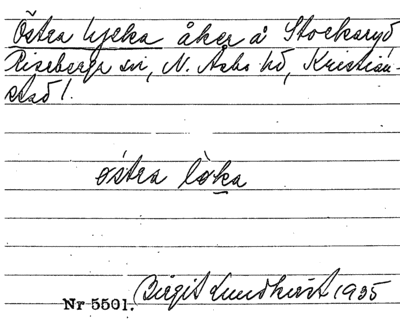 Östra lycka åker å Stocksryd
Riseberga sn, N. Åsbo hd, Kristian-
stad l.
östra lò̱ka
Nr 5501. Birgit Lundkvist 1935